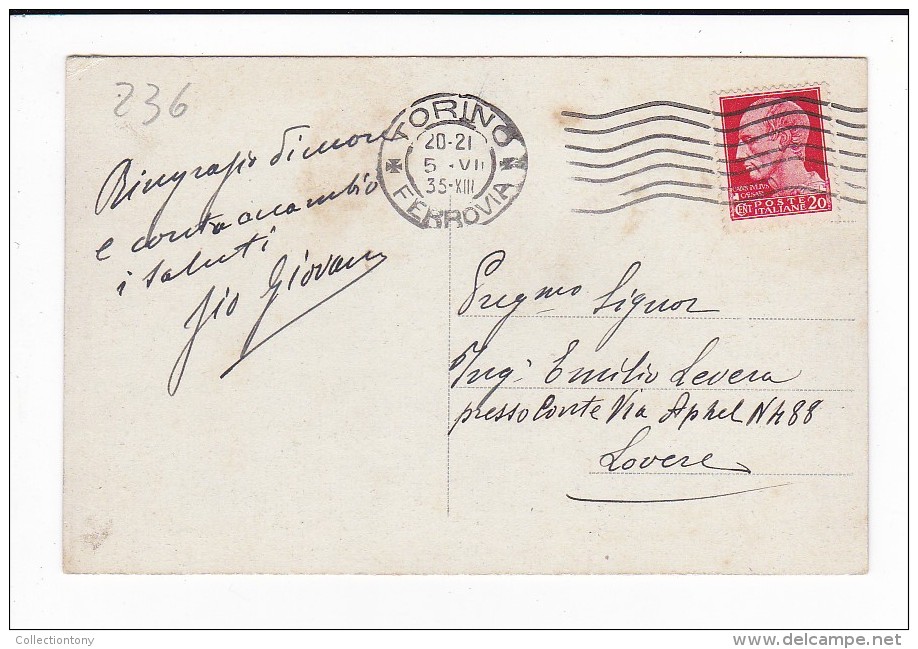 236
TORINO
20-21
5 · VII
35-XIII
FERROVIA
IVLIVS
CAESAR
CENT POSTE
ITALIANE 20
Ringrazio
e contraccambio
i saluti
Zio Giovanni
Preg.mo Signor
Ing. Emilio Levera
presso Conte Via Aphel N 88
Lovere
Collectiontony
www.delcampe.net